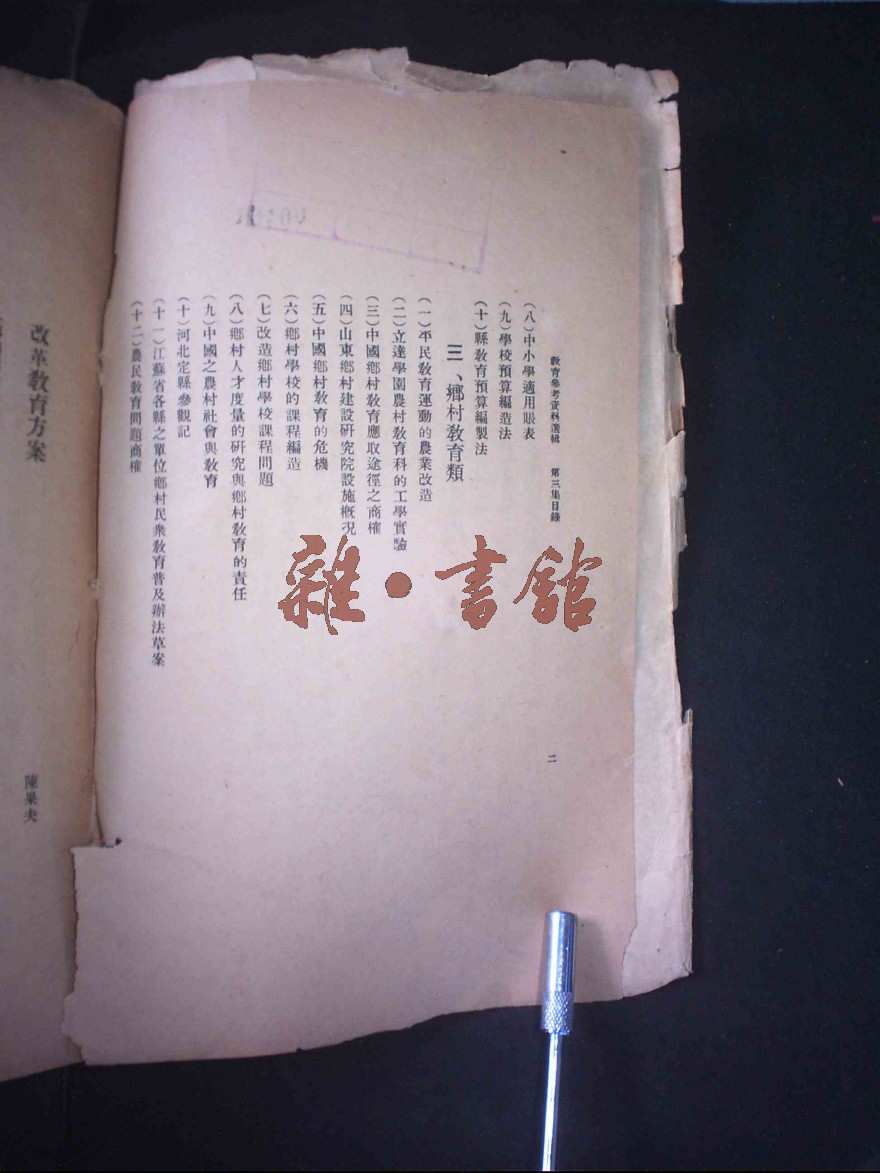 教育參考資料選輯 第三集目錄
二
(八)中小學適用賬表
(九)學校預算編造法
(十)縣教育預算編製法
三、鄉村教育類
(一)平民教育運動的農業改造
(二)立達學園農村教育科的工學實驗
(三)中國鄉村教育應取途徑之商榷
(四)山東鄉村建設研究院設施概况
(五)中國鄉村教育的危機
(六)鄉村學校的課程編造
(七)改造鄉村學校課程問題
(八)鄉村人才度量的研究與鄉村教育的責任
(九)中國之農村社會與教育
(十)河北定縣參觀記
(十一)江蘇省各縣之單位鄉村民衆教育普及辦法草案
(十二)農民教育問題商榷
改革教育方案
陳果夫
雜·書館